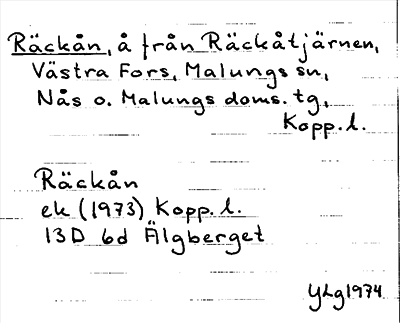 Räckån, å från Räckåtjärnen,
Västra Fors, Malungs sn,
Nås o. Malungs doms. tg,
Kopp. l.
Räckån
ek (1973) Kopp. l.
13D 6d Älgberget
YLg 1974